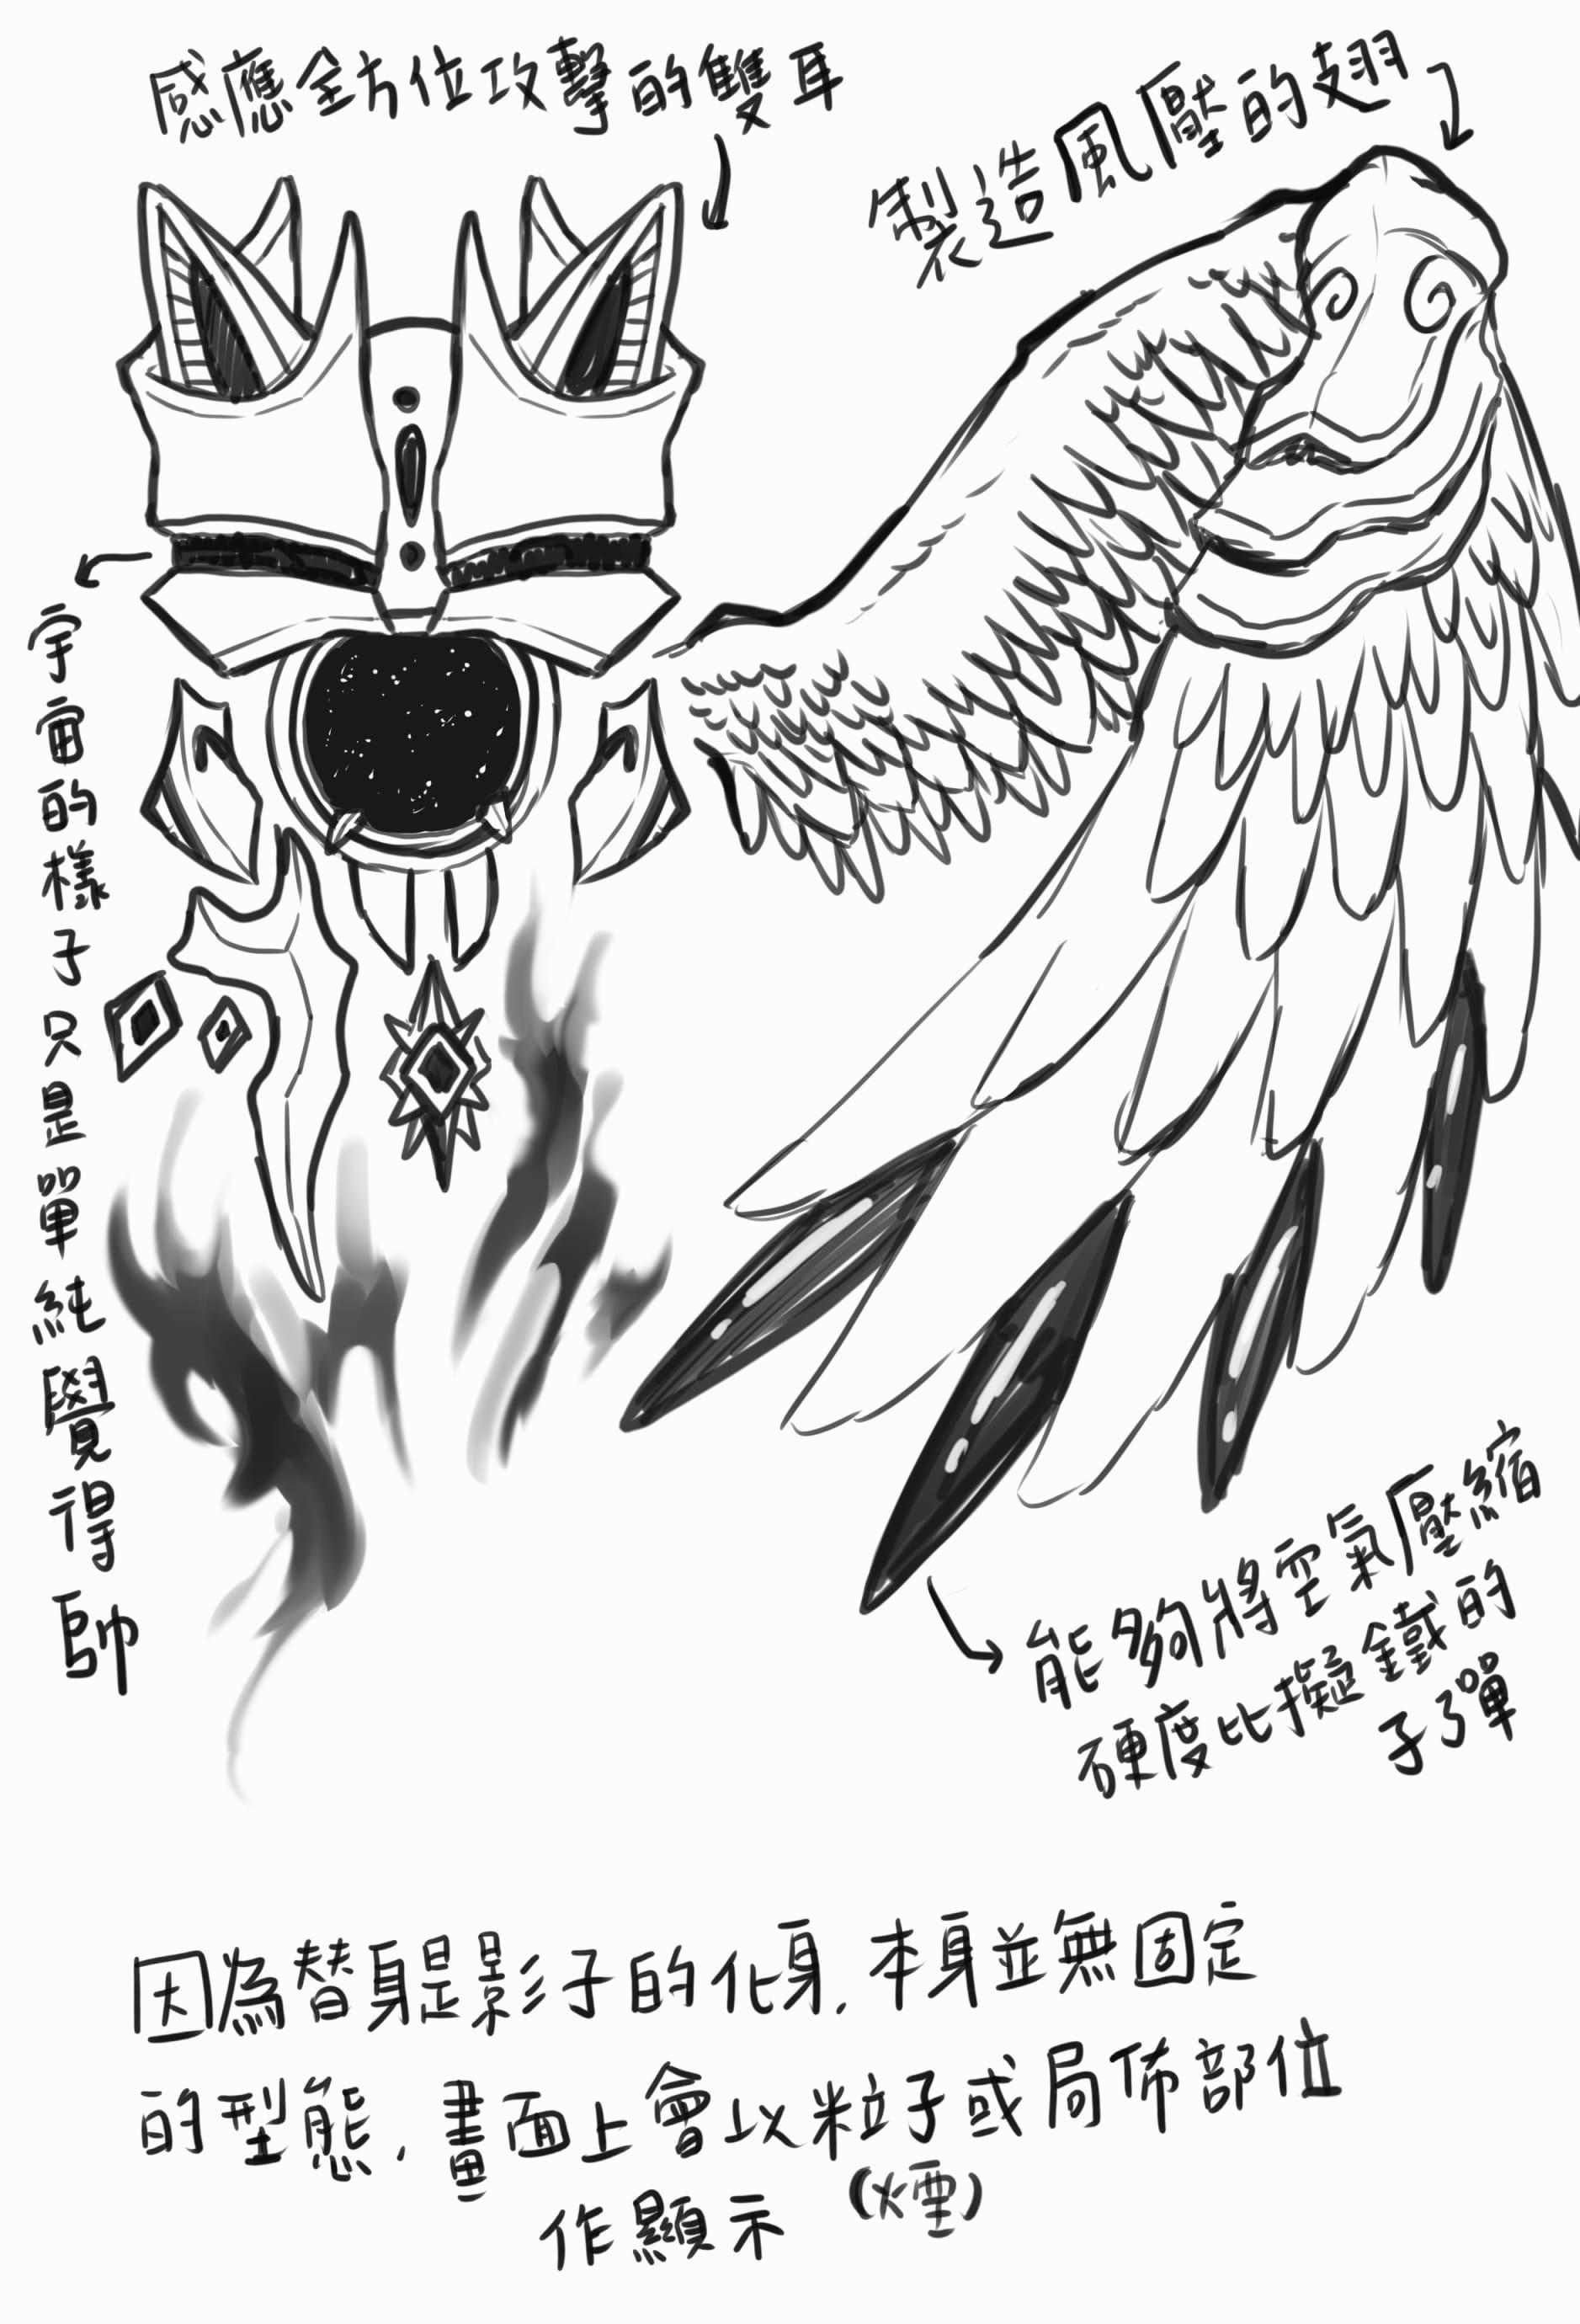 感應全方位攻擊的雙耳
製造風壓的翅
宇宙的樣子只是單純覺得帥
能夠將空氣壓縮
硬度比擬鐵的
子彈
因為替身是影子的化身.本身並無固定
的型態,畫面上會以粒子或局佈部位
(煙)
作顯示